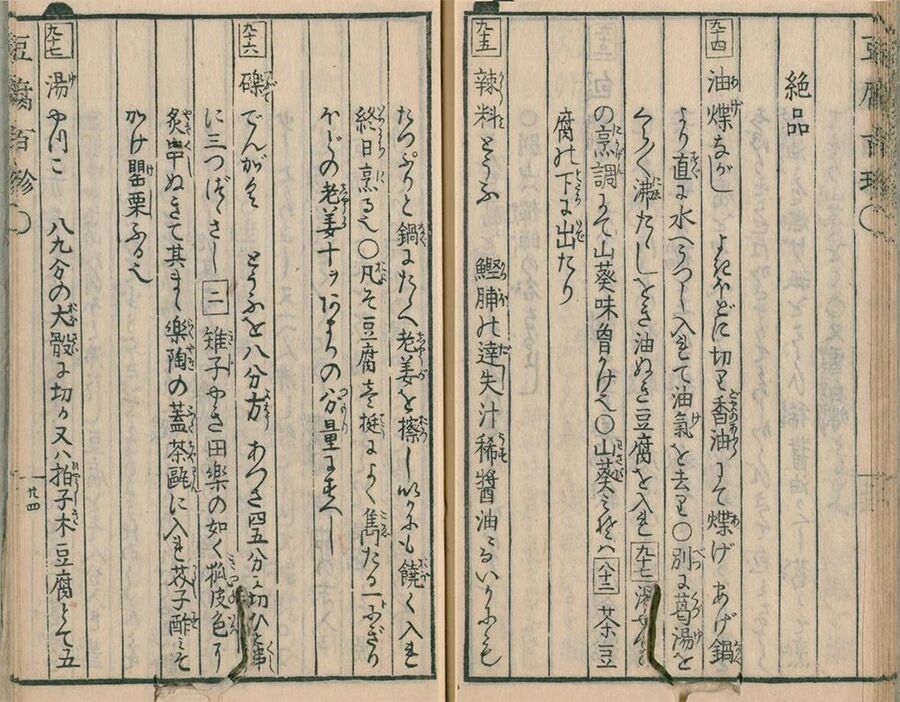 豆腐百珍
絶品
九十四 油煠ながし よきほどに切り香油にて煠げ あげ鍋
より直に水へうつし入れて油氣を去り〇別に葛湯を
くらく沸たゝしをき油ぬき豆腐を入れ 九十七 湯やつこ
の烹調にて山葵味曽かけ也〇山葵みそハ 八十三 茶豆
腐の下に出たり
九十五 辣料とうふ 鰹脯の達失汁稀醬油にていかにも
たつぷりと鍋にたくハへ老姜を擦しいかにも饒く入れ
終日烹る也〇凡そ豆腐壱挺によく雋たる一にぎり
ほどの老姜十ヲの分量にすべし
九十六 礫でんがく とうふを八分方 あつさ四五分に切ひと串
に三つづゝさし 二 雉子やき田樂の如く狐色
炙串ぬきて其まゝ樂陶の蓋茶甌に入れ芥子酢みそ
かけ罌粟ふる也
九十七 湯やつこ 八九分の大骰に切か又ハ拍子木豆腐とて五
豆腐百珍
廿四